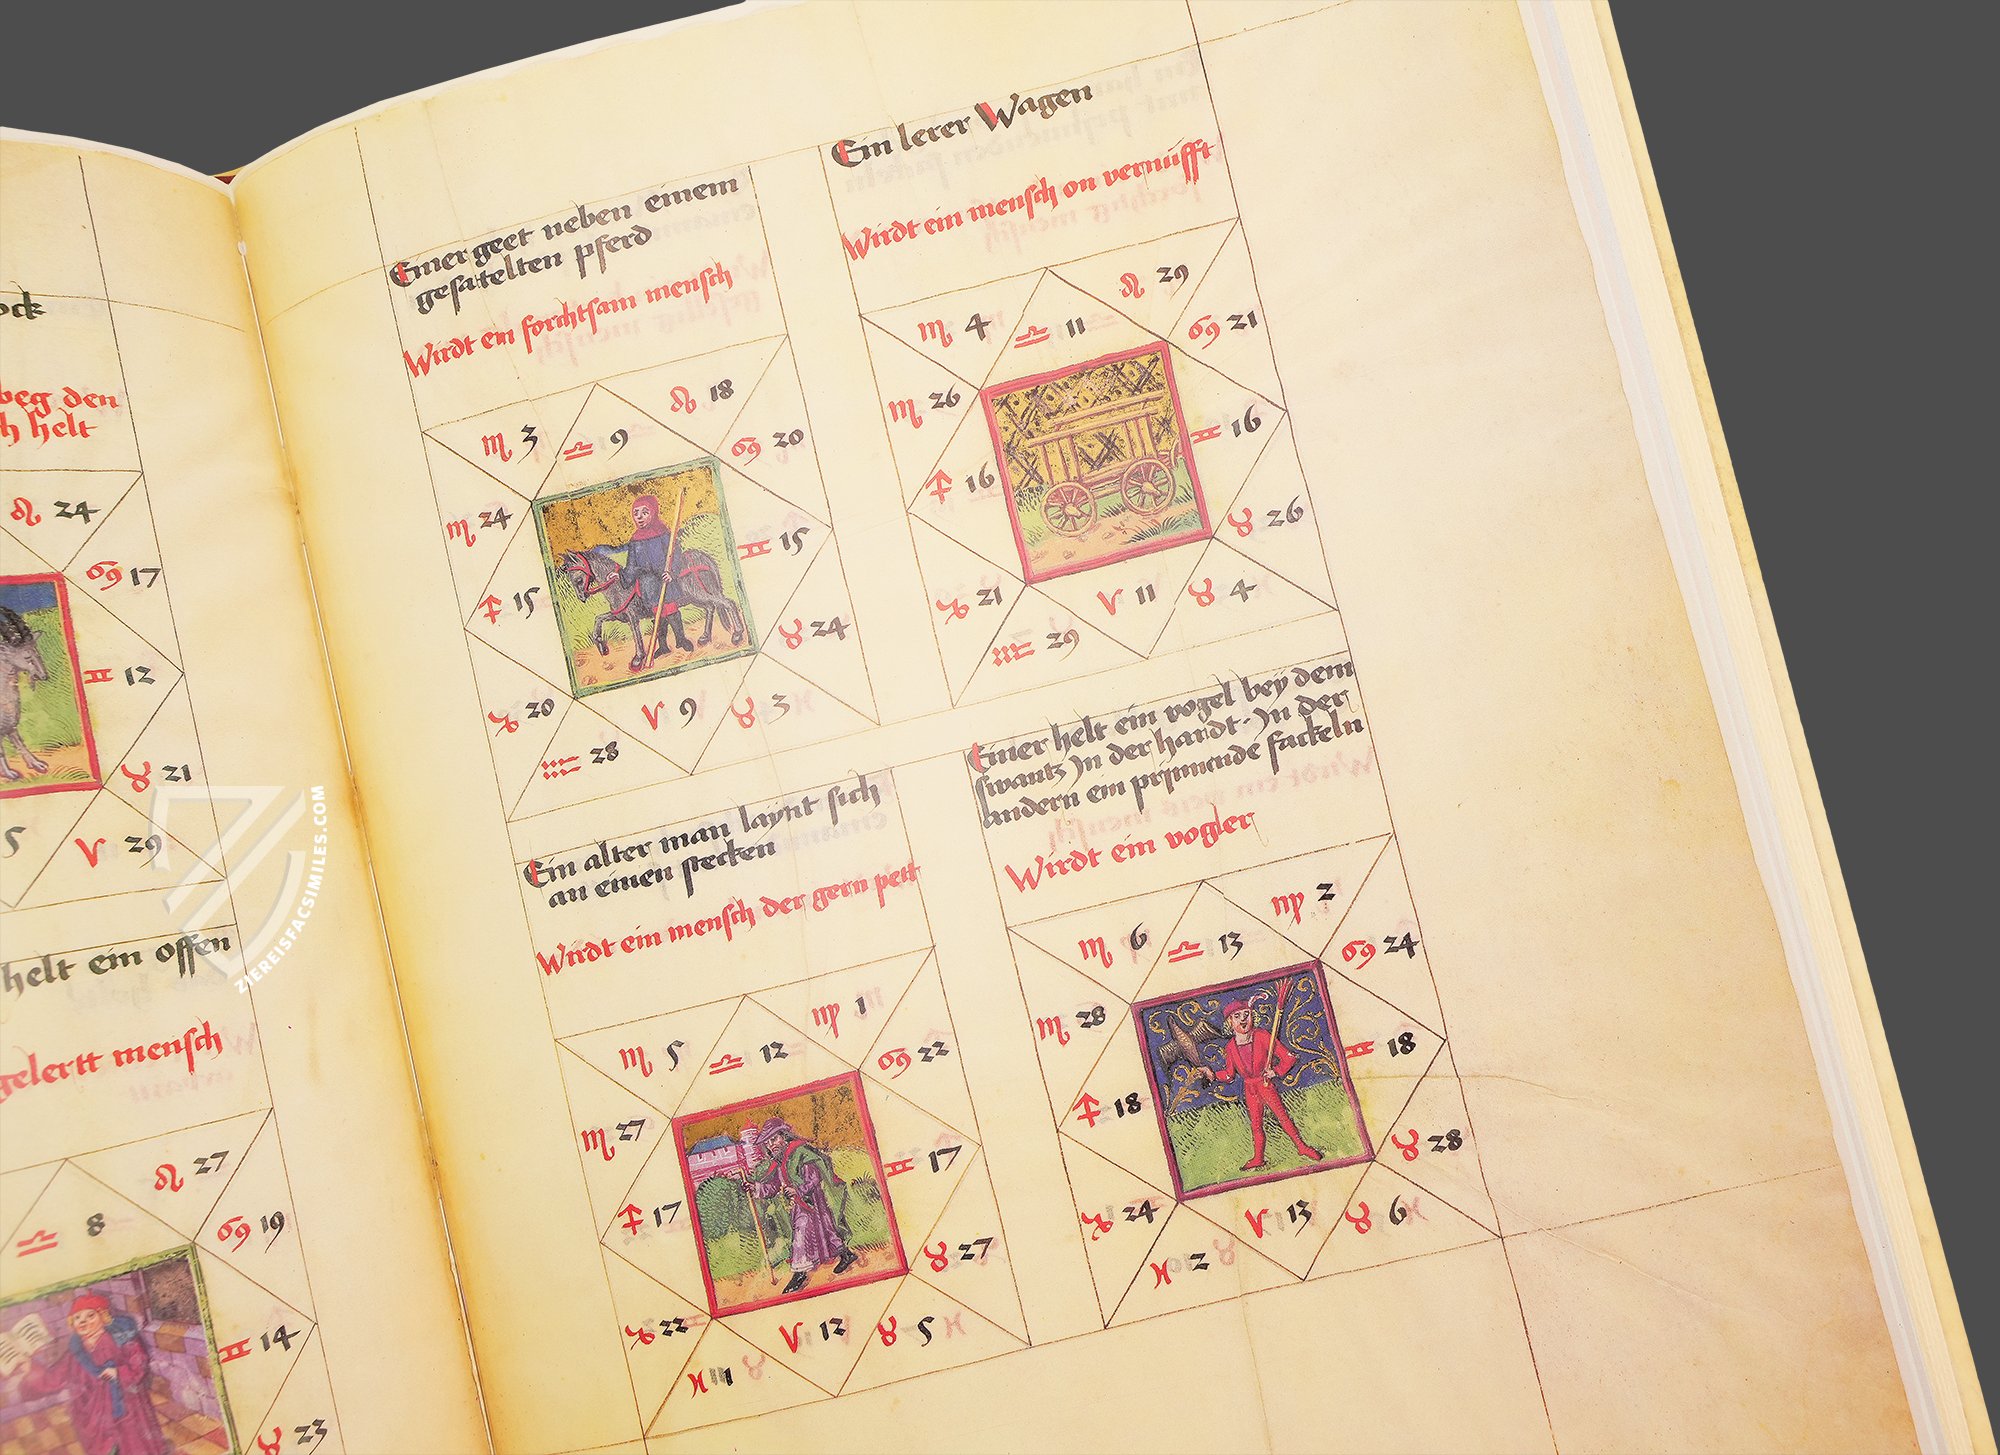 ock
beg den
h helt
♌ 24
♋ 17
♊ 12
♉ 21
5
♈ 29
helt ein offen
gelertt mensch
♌ 27
♎ 8
♋ 19
♊ 14
♉ 23
Einer geet neben einem
gesatelten pferd
Wirdt ein forchtsam mensch
♏ 3
♎ 9
♌ 18
♋ 20
♏ 24
♊ 15
♐ 15
♉ 24
♑ 20
♈ 9
♉ 3
♒ 28
Ein lerer Wagen
Wirdt ein mensch on vernufft
♏ 4
♎ 11
♌ 29
♋ 21
♏ 26
♊ 16
♐ 16
♉ 26
♑ 21
♈ 11
♉ 4
♒ 29
Ein alter man laynt sich
an einen stecken
Wirdt ein mensch der gern pett
♏ 5
♎ 12
♍ 1
♋ 22
♏ 27
♊ 17
♐ 17
♉ 27
♑ 22
♈ 12
♉ 5
♓ 1
Einer helt ein vogel bey dem
swantz Jn der handt · Jn der
andern ein prynnende fackeln
Wirdt ein vogler
♏ 6
♎ 13
♍ 2
♋ 24
♏ 28
♊ 18
♐ 18
♉ 28
♑ 24
♈ 13
♉ 6
♓ 2
ZIEREISFACSIMILES.COM